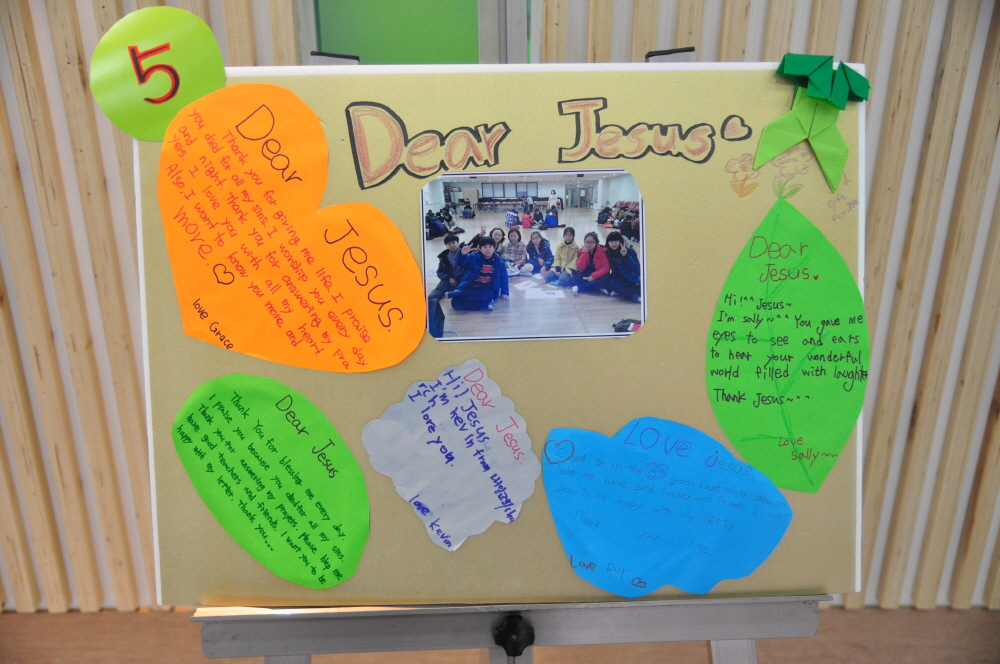 5
Dear Jesus
Dear
Jesus.
Thank you for giving me life. I praise
you died for all my sins. I worship you every day
and night. Thank you for answering my pra
yers. I love you with all my heart.
Also, I want to know you more and
more.
love Grace
Dear
Jesus.
Hi!^^ Jesus~
I'm sally~^^ You gave me
eyes to see and ears
to hear your wonderful
world filled with laughter
Thank Jesus~^^
Love
Sally~
Dear Jesus
Thank You for blessing me every day.
I praise you because you died for all my sins.
Thank you for answering my prayers. Please help me
have good teachers and friends. I want you to be
happy with my letter. Thank you...
Dear Jesus.
Hi! Jesus
I'm kevin from
I love you.
love kevin
LOVE Jesus
will be in the grade next month
me have good teacher and friends I want
you to be happy with my letter
Thank
Love